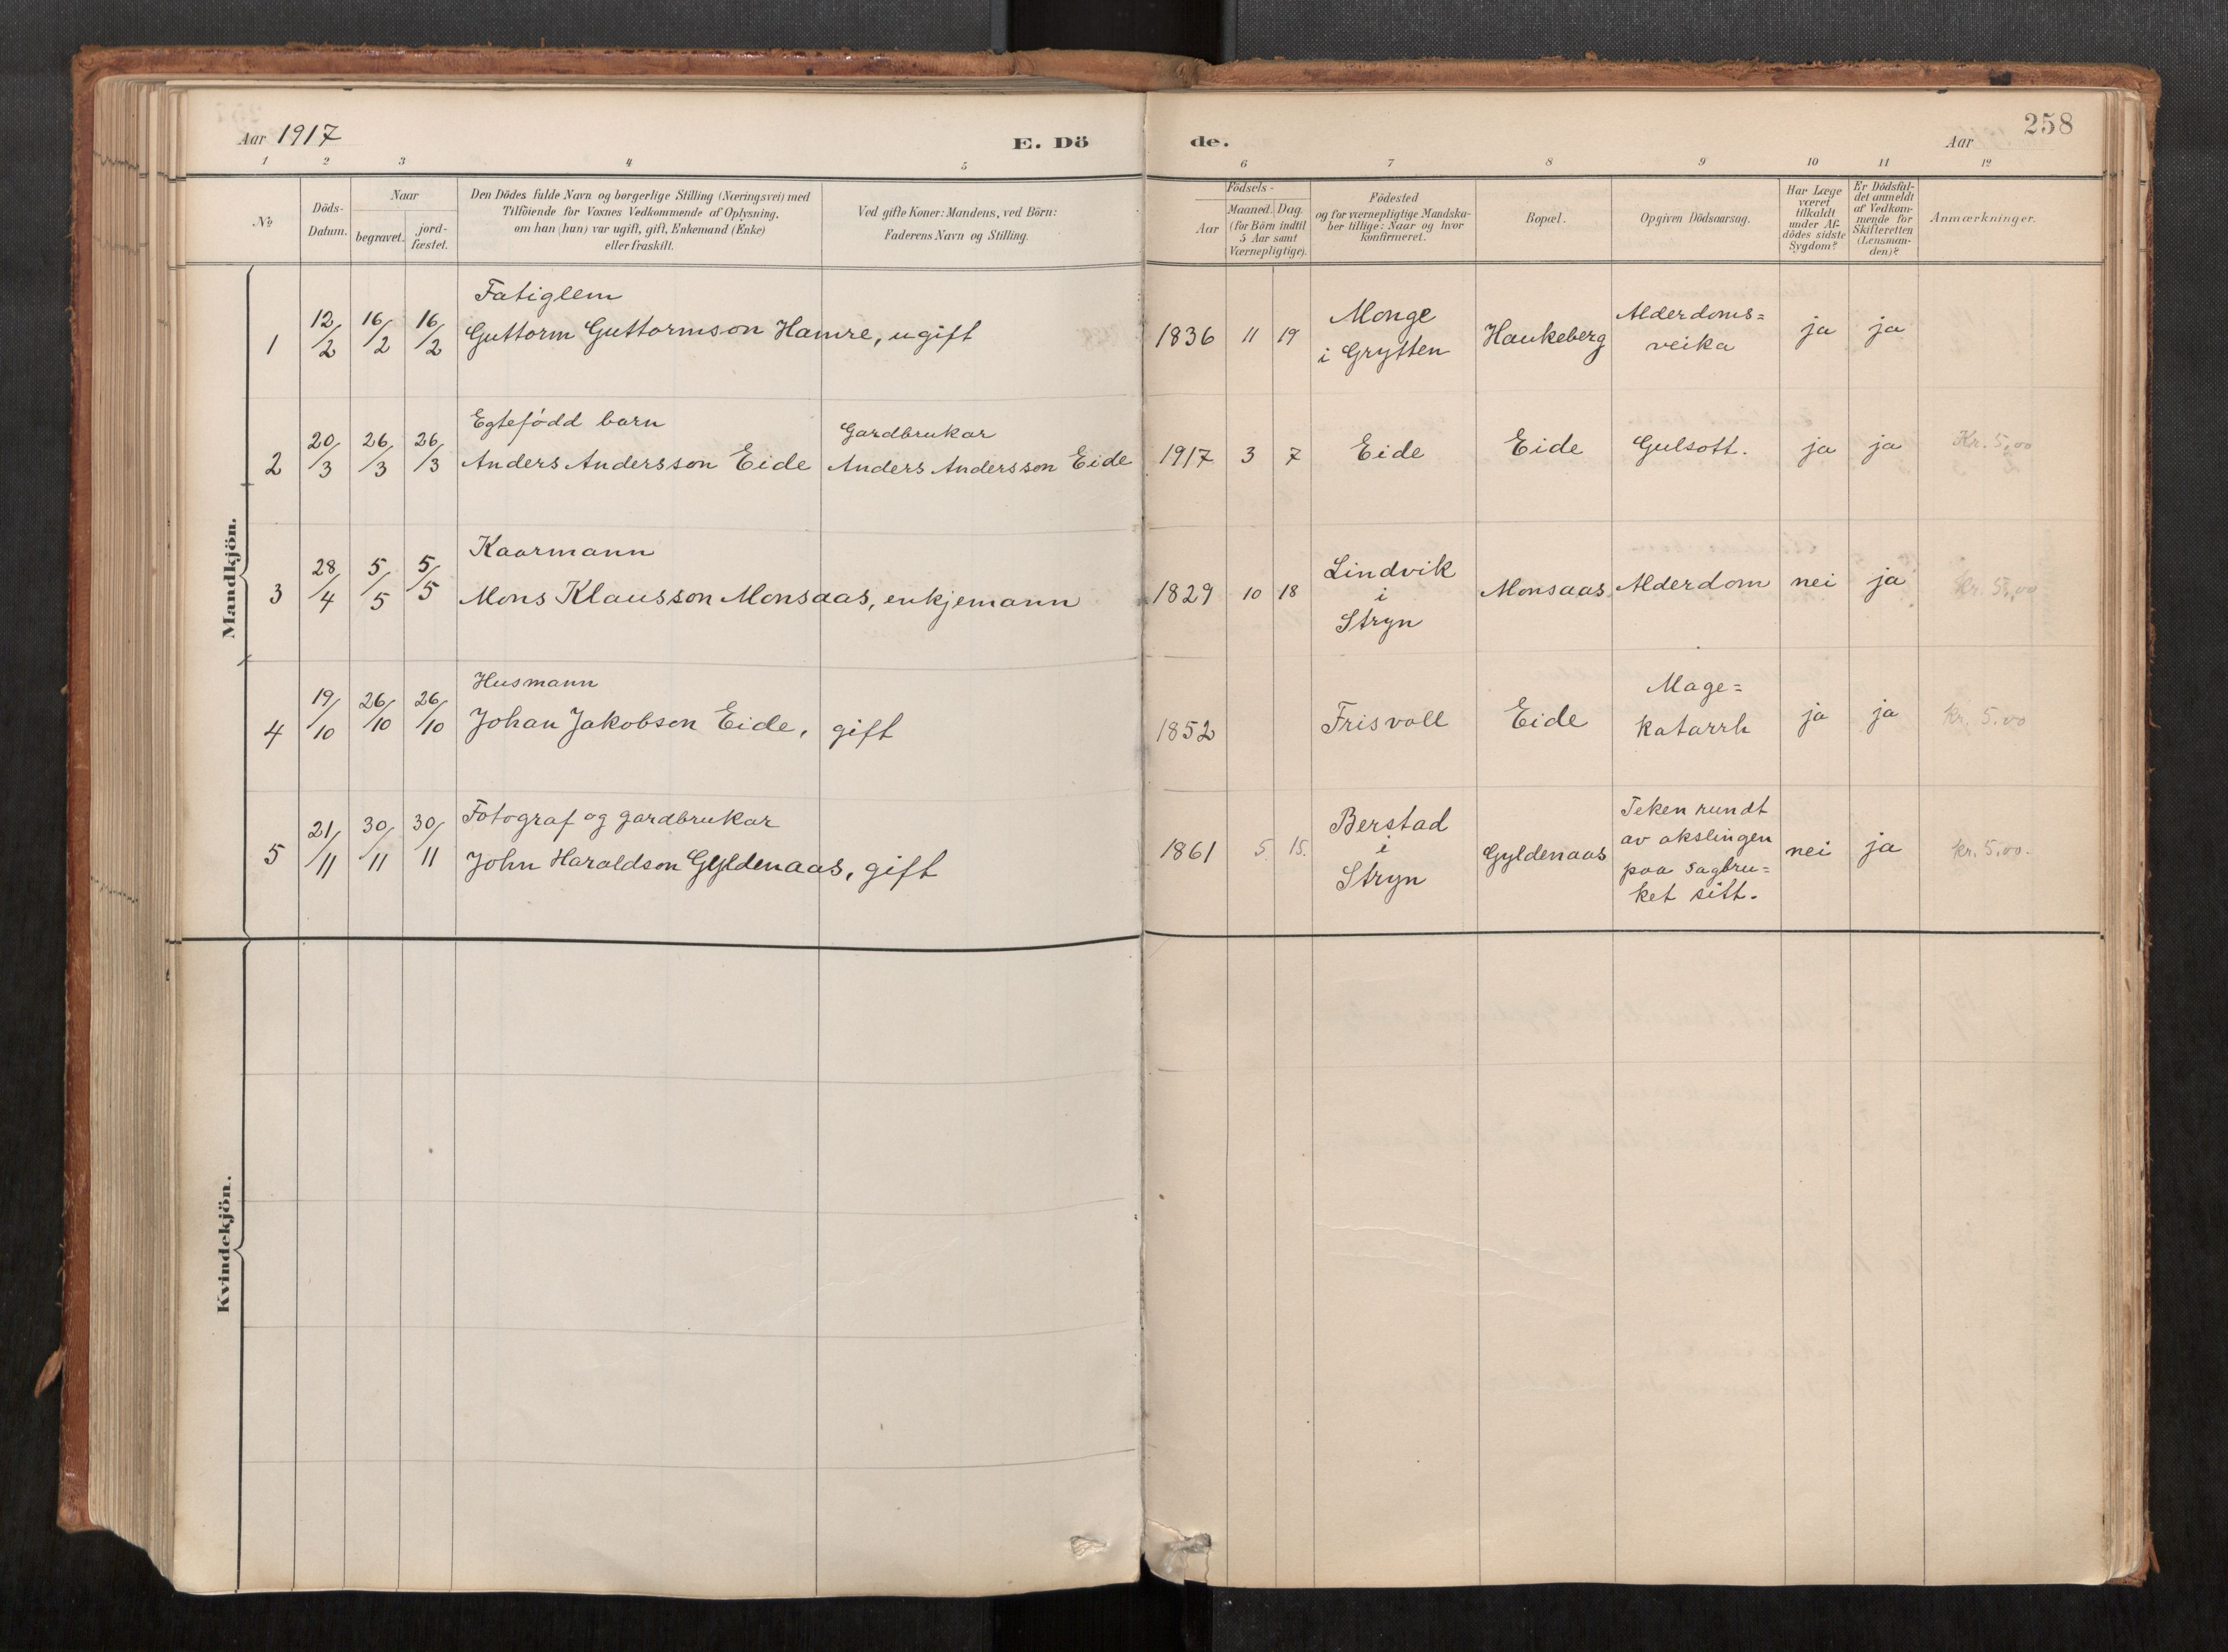 Aar 1917
E. Dö
de.
Aar
258
1 2 3 4 5 6 7 8 9 10 11 12
No
Döds-
Datum.
Naar
begravet.
jord-
fæstet.
Den Dödes fulde Navn og borgerlige Stilling (Næringsvei) med
Tilföiende for Voxnes Vedkommende af Oplysning,
om han (hun) var ugift, gift, Enkemand (Enke)
eller fraskilt.
Ved gifte Koner: Mandens, ved Börn:
Faderens Navn og Stilling.
Födsels-
Aar
Maaned. Dag.
(for Börn indtil
5 Aar samt
Værnepligtige).
Födested
og for værnepligtige Mandska-
ber tillige: Naar og hvor
konfirmeret.
Bopæl.
Opgiven Dödsaarsag.
Har Læge
været
tilkaldt
under Af-
dödes sidste
Sygdom?
Er Dödsfal-
det anmeldt
af Vedkom-
mende for
Skifteretten
(Lensman-
den)?
Anmærkninger.
Mandkjön.
1
12/2
16/2
16/2
Fatiglem
Guttorm Guttormson Hamre, ugift
1836 11 19
Monge
i Grytten
Haukeberg
Alderdoms=
veika
ja
ja
2
20/3
26/3
26/3
Egtefödd barn
Anders Andersson Eide
Gardbrukar
Anders Andersson Eide
1917 3 7
Eide
Eide
Gulsott.
ja
ja
Kr. 5,00
3
28/4
5/5
5/5
Kaarmann
Mons Klausson Monsaas, enkjemann
1829 10 18
Lindvik
i
Stryn
Monsaas
Alderdom
nei
ja
Kr. 5,00
4
19/10
26/10
26/10
Husmann
Johan Jakobson Eide, gift
1852
Frisvoll
Eide
Mage=
katarrh
ja
ja
Kr. 5.00
5
21/11
30/11
30/11
Fotograf og gardbrukar
John Haraldson Gyldenaas, gift
1861 5. 15.
Berstad
i
Stryn
Gyldenaas
Teken rundt
av akslingen
paa sagbru=
ket sitt.
nei
ja
kr. 5,00.
Kvindekjön.